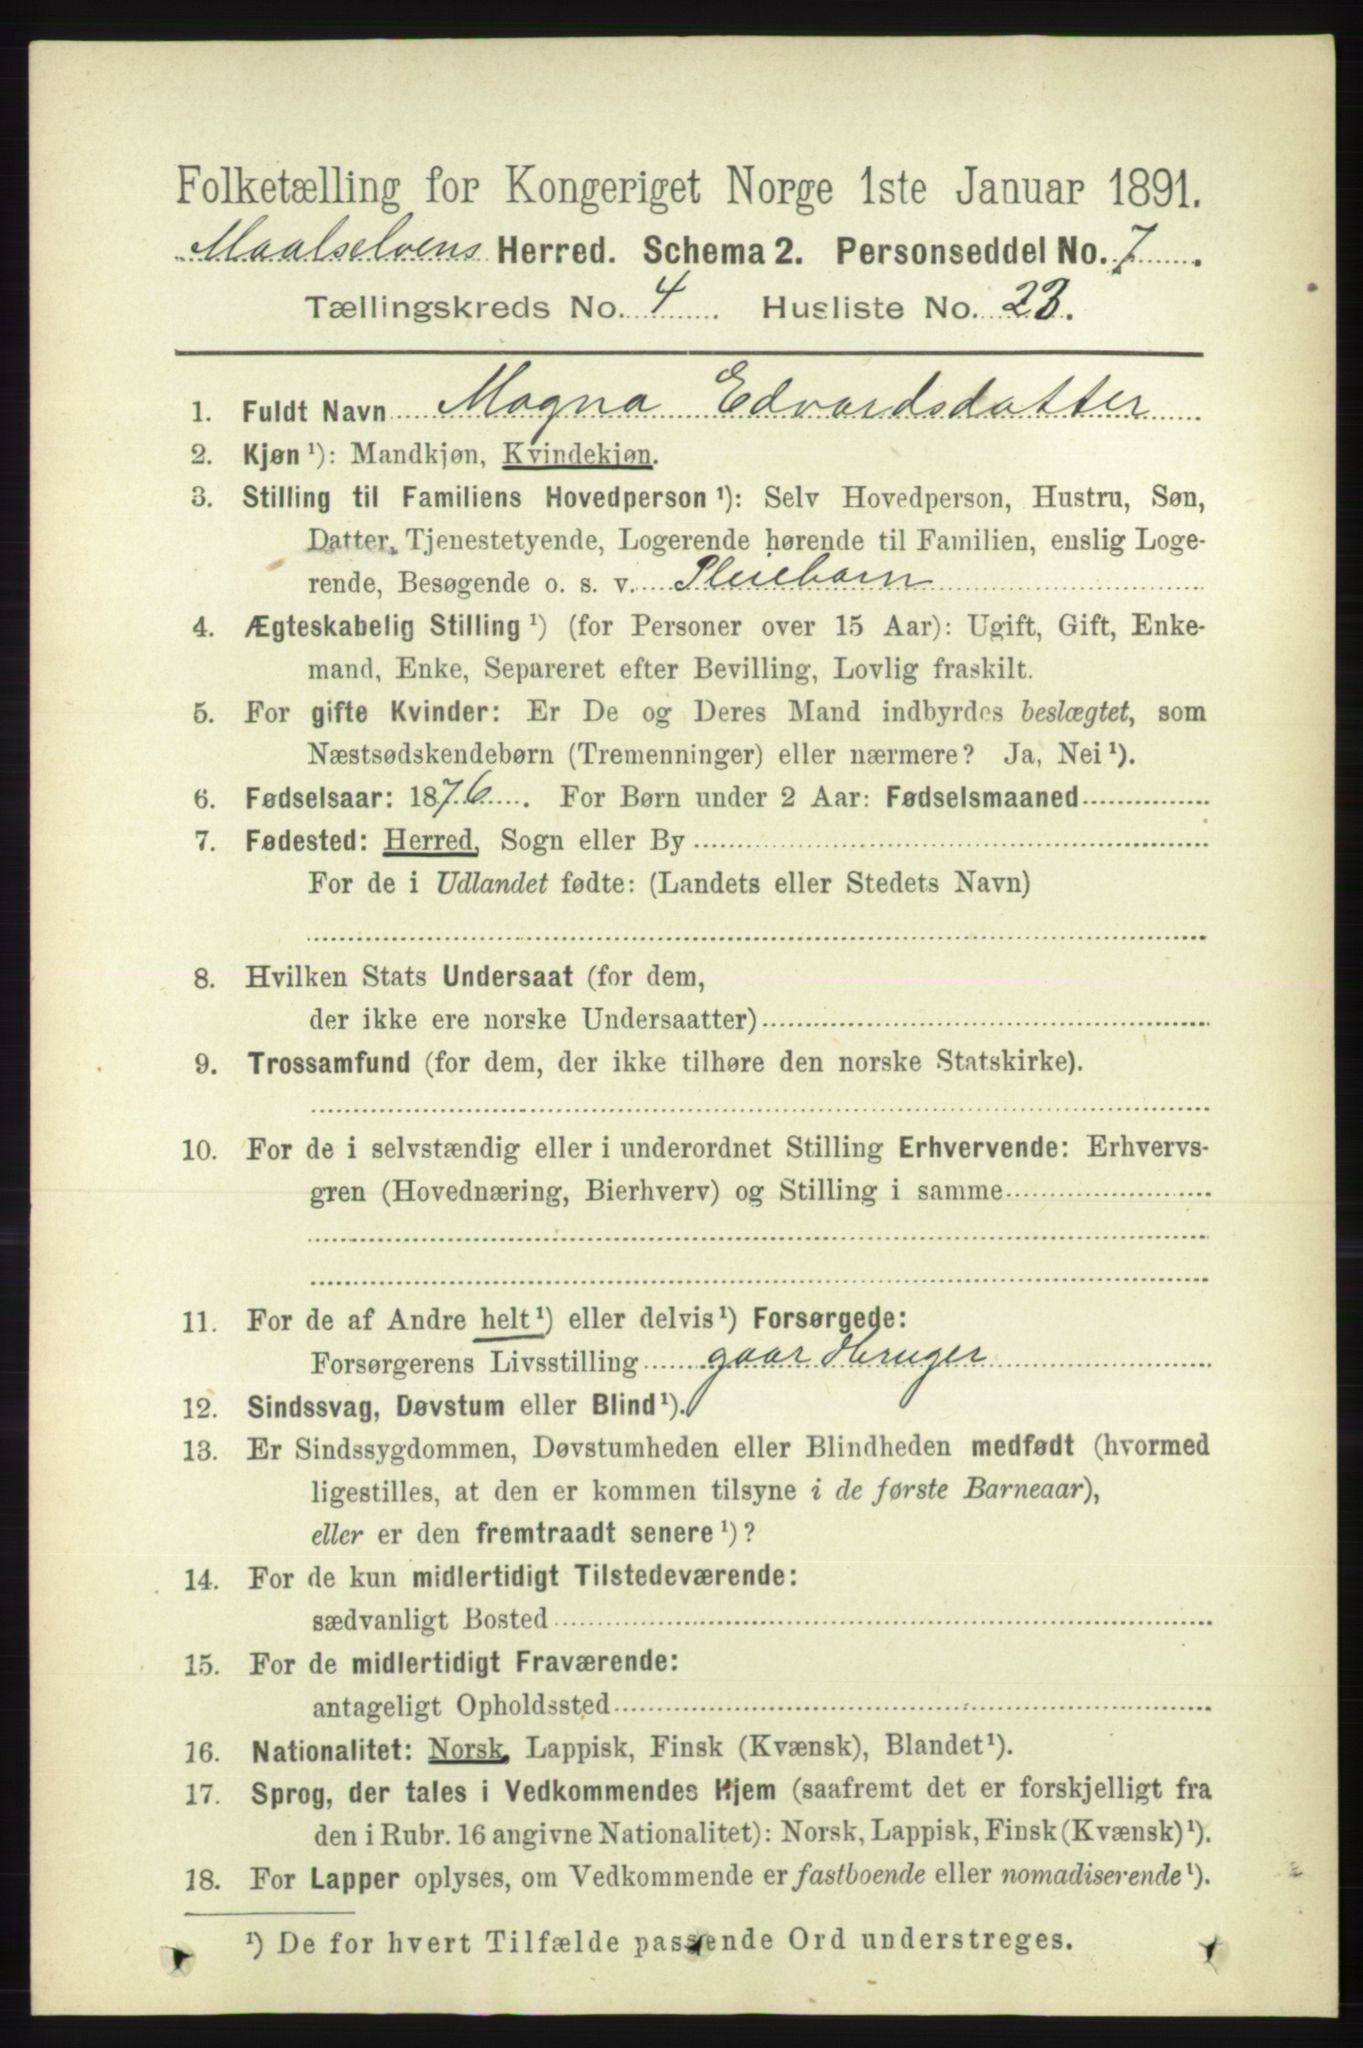 Folketælling for Kongeriget Norge 1ste Januar 1891.
Maalselvens Herred. Schema 2. Personseddel No. 7
Tællingskreds No. 4 Husliste No. 23.
1. Fuldt Navn Magna Edvardsdatter
2. Kjøn ¹): Mandkjøn, Kvindekjøn.
3. Stilling til Familiens Hovedperson ¹): Selv Hovedperson, Hustru, Søn,
Datter, Tjenestetyende, Logerende hørende til Familien, enslig Loge-
rende, Besøgende o. s. v. Pleiebarn
4. Ægteskabelig Stilling ¹) (for Personer over 15 Aar): Ugift, Gift, Enke-
mand, Enke, Separeret efter Bevilling, Lovlig fraskilt.
5. For gifte Kvinder: Er De og Deres Mand indbyrdes beslægtet, som
Næstsødskendebørn (Tremenninger) eller nærmere? Ja, Nei ¹).
6. Fødselsaar: 1876. For Børn under 2 Aar: Fødselsmaaned
7. Fødested: Herred, Sogn eller By
For de i Udlandet fødte: (Landets eller Stedets Navn)
8. Hvilken Stats Undersaat (for dem,
der ikke ere norske Undersaatter)
9. Trossamfund (for dem, der ikke tilhøre den norske Statskirke).
10. For de i selvstændig eller i underordnet Stilling Erhvervende: Erhvervs-
gren (Hovednæring, Bierhverv) og Stilling i samme
11. For de af Andre helt ¹) eller delvis ¹) Forsørgede:
Forsørgerens Livsstilling gaar
12. Sindssvag, Døvstum eller Blind ¹).
13. Er Sindssygdommen, Døvstumheden eller Blindheden medfødt (hvormed
ligestilles, at den er kommen tilsyne i de første Barneaar),
eller er den fremtraadt senere ¹)?
14. For de kun midlertidigt Tilstedeværende:
sædvanligt Bosted
15. For de midlertidigt Fraværende:
antageligt Opholdssted
16. Nationalitet: Norsk, Lappisk, Finsk (Kvænsk), Blandet ¹).
17. Sprog, der tales i Vedkommendes Hjem (saafremt det er forskjelligt fra
den i Rubr. 16 angivne Nationalitet): Norsk, Lappisk, Finsk (Kvænsk) ¹).
18. For Lapper oplyses, om Vedkommende er fastboende eller nomadiserende ¹).
¹) De for hvert Tilfælde passende Ord understreges.